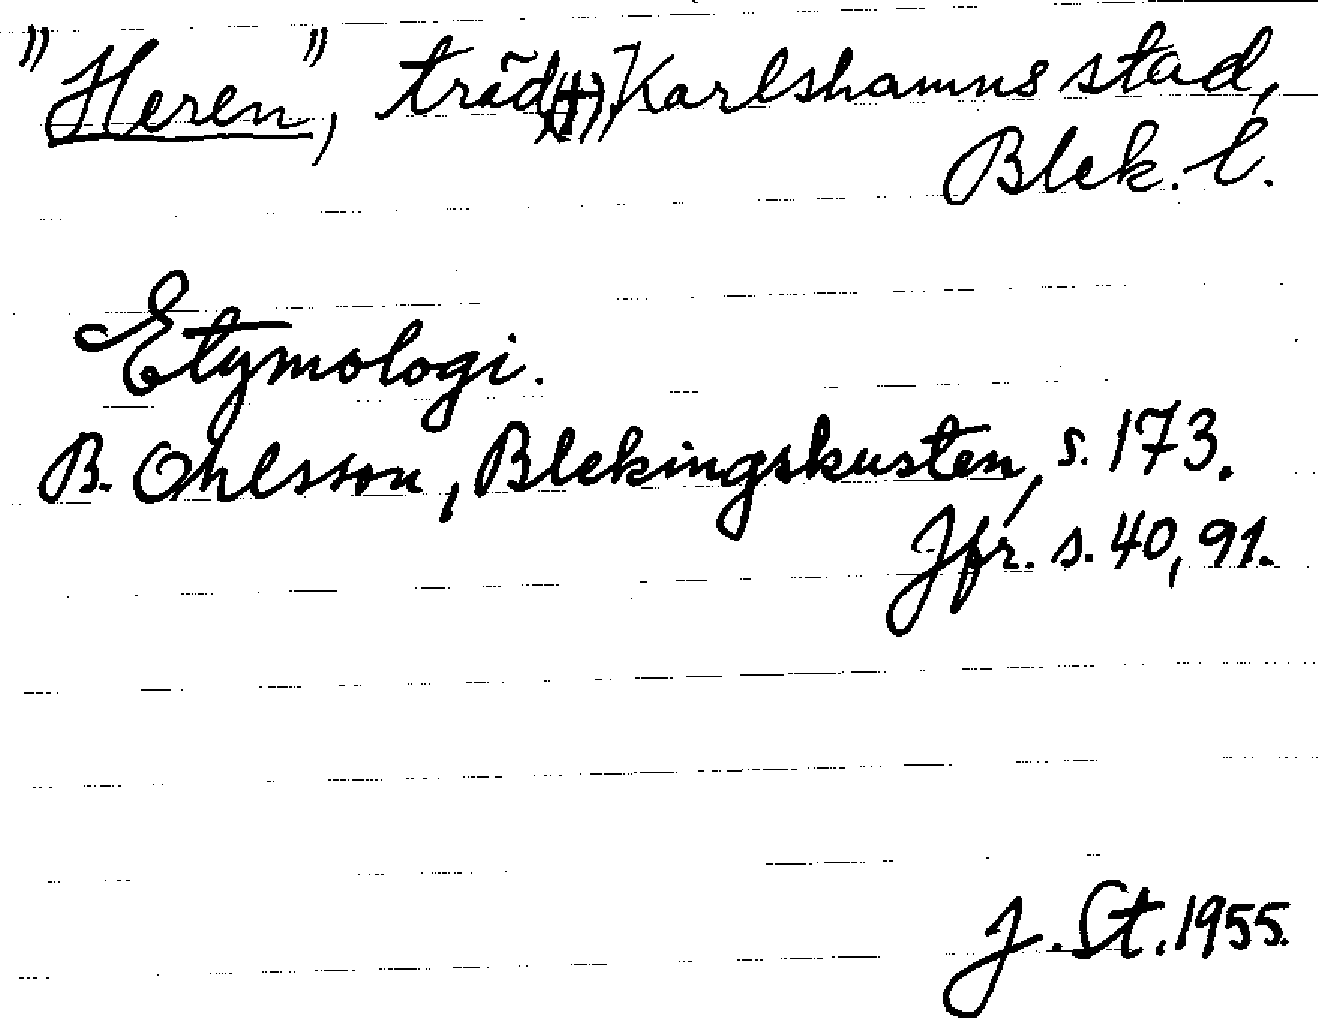 "Heren", träd (†), Karlshamns stad,
Blek. l.
Etymologi.
B. Ohlsson, Blekingskusten, s. 173.
Jfr. s. 40, 91.
J. St. 1955.